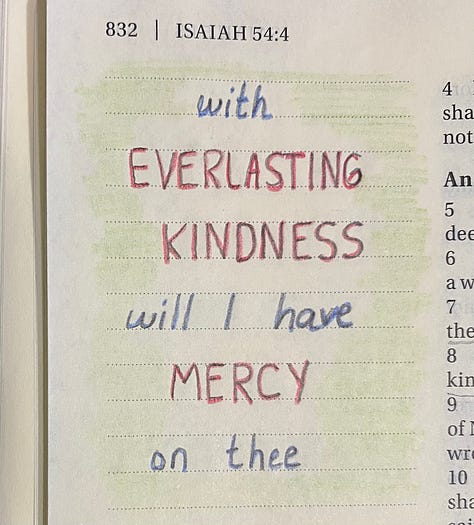 832 | ISAIAH 54:4
with
EVERLASTING
KINDNESS
will I have
MERCY
on thee
4
sha
not
An
5
dee
6
a w
7
the
8
kin
9
of N
wro
10
sha